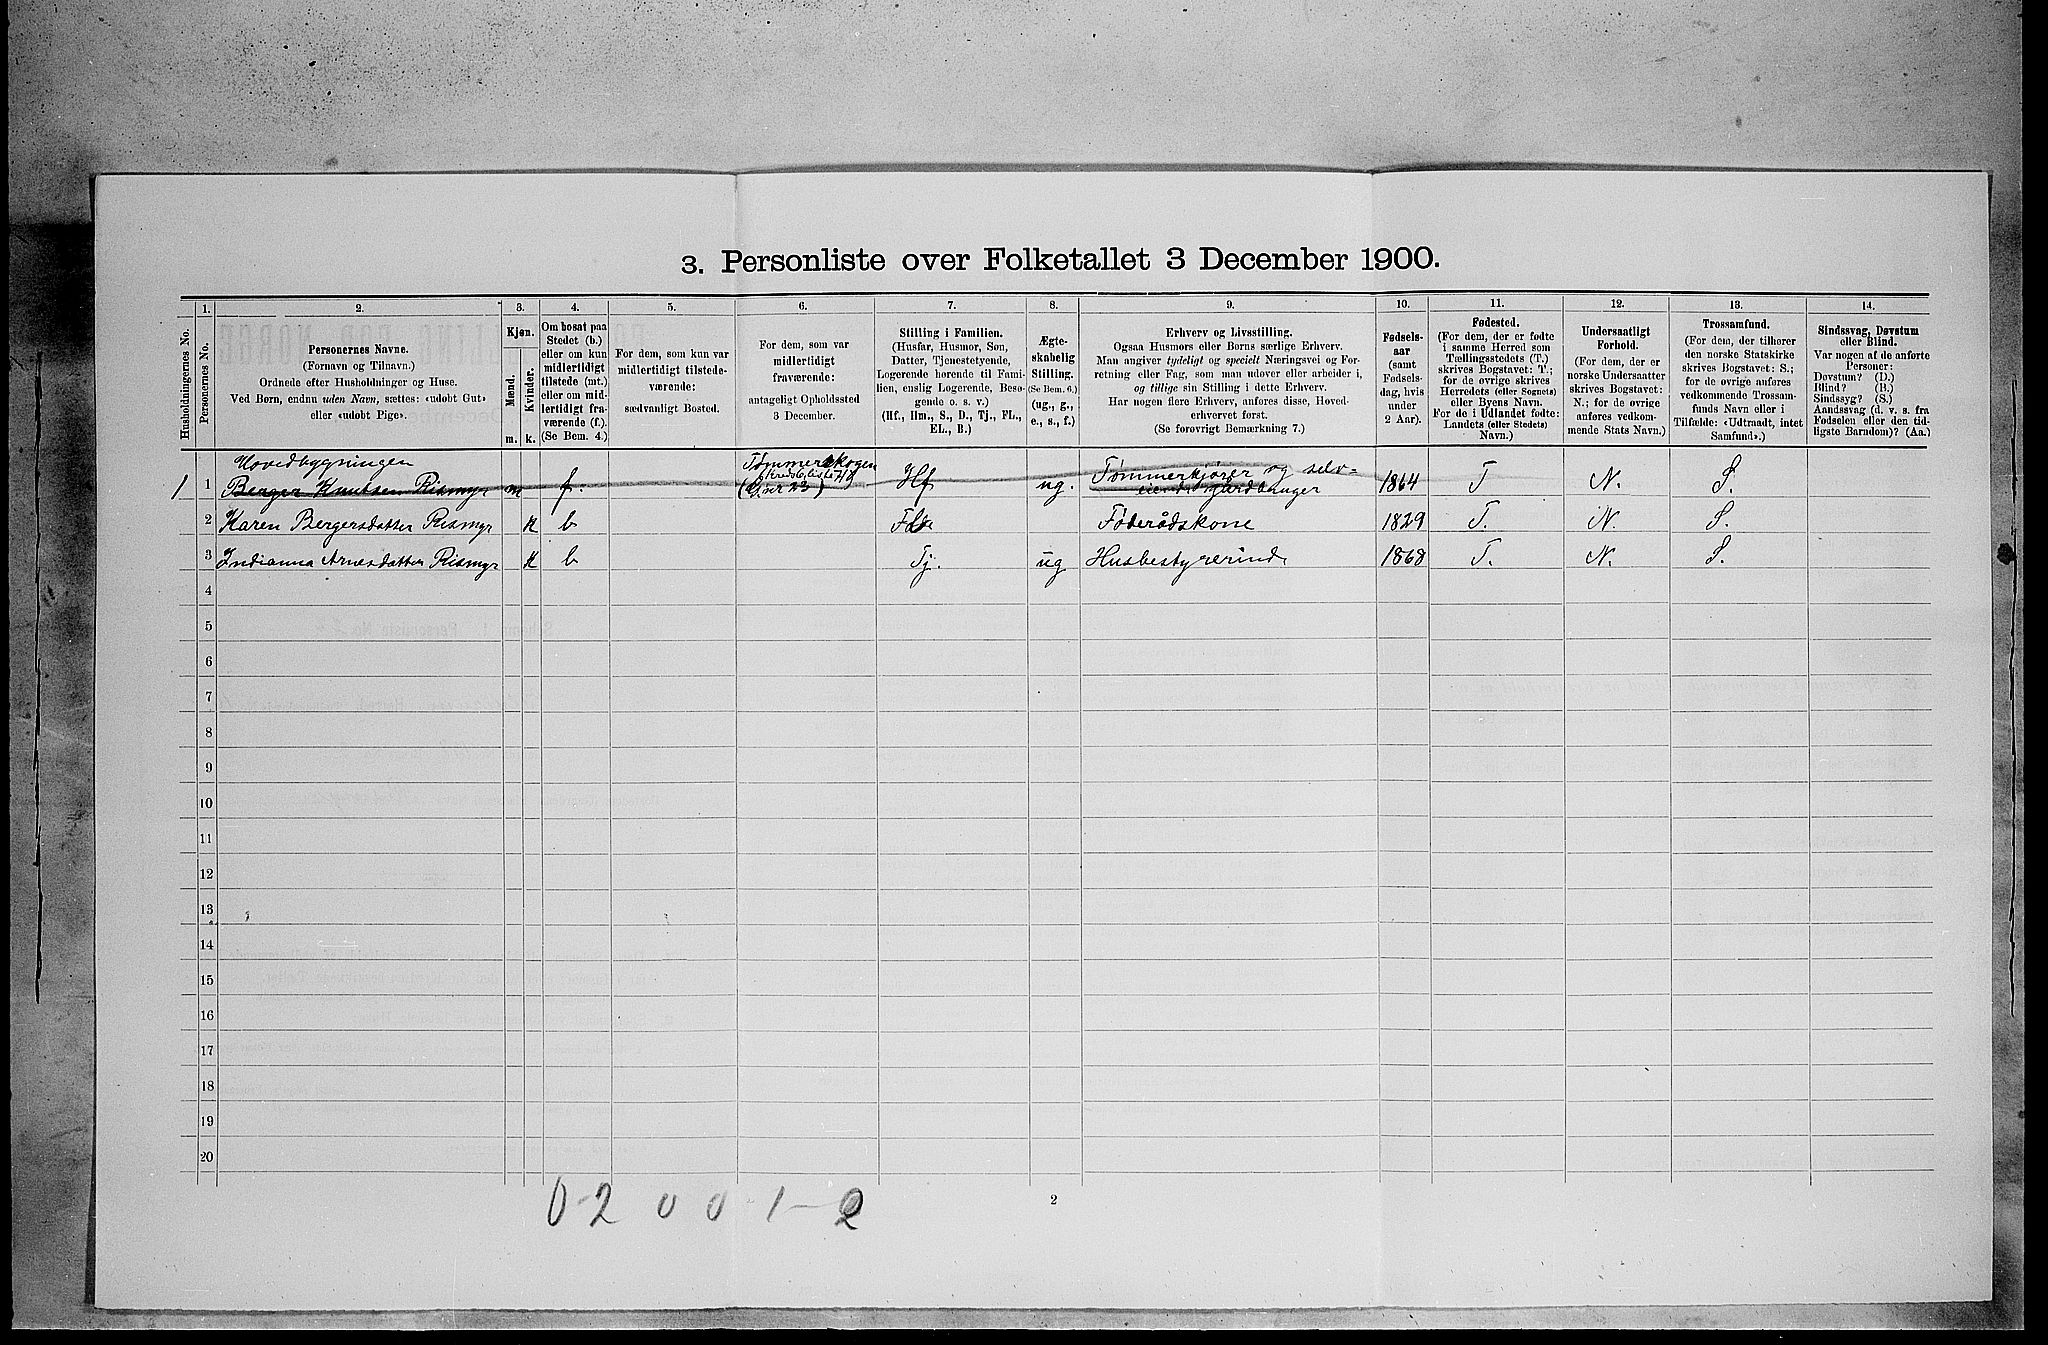 3. Personliste over Folketallet 3 December 1900.
1. 2. 3. 4. 5. 6. 7. 8. 9. 10. 11. 12. 13. 14.
Husholdningernes No.
Personernes No.
Personernes Navne.
(Fornavn og Tilnavn.)
Ordnede efter Husholdninger og Huse.
Ved Børn, endnu uden Navn, sættes: «udøbt Gut»
eller «udøbt Pige».
Kjøn.
Mænd.
Kvinder.
m. k.
Om bosat paa
Stedet (b.)
eller om kun
midlertidigt
tilstede (mt.)
eller om mid-
lertidigt fra-
værende (f.).
(Se Bem. 4.)
For dem, som kun var
midlertidigt tilstede-
værende:
sædvanligt Bosted.
For dem, som var
midlertidigt
fraværende:
antageligt Opholdssted
3 December.
Stilling i Familien.
(Husfar, Husmor, Søn,
Datter, Tjenestetyende,
Logerende hørende til Fami-
lien, enslig Logerende, Besø-
gende o. s. v.)
(Hf., Hm., S., D., Tj., FL.,
EL., B.)
Ægte-
skabelig
Stilling.
(Se Bem. 6.)
(ug., g.,
e., s., f.)
Erhverv og Livsstilling.
Ogsaa Husmors eller Børns særlige Erhverv.
Man angiver tydeligt og specielt Næringsvei og For-
retning eller Fag, som man udøver eller arbeider i,
og tillige sin Stilling i dette Erhverv.
Har nogen flere Erhverv, anføres disse, Hoved-
erhvervet først.
(Se forøvrigt Bemærkning 7.)
Fødsels-
aar
(samt
Fødsels-
dag, hvis
under
2 Aar).
Fødested.
(For dem, der er fødte
i samme Herred som
Tællingsstedets (T.)
skrives Bogstavet: T.;
for de øvrige skrives
Herredets (eller Sognets)
eller Byens Navn.
For de i Udlandet fødte:
Landets (eller Stedets)
Navn.)
Undersaatligt
Forhold.
(For dem, der er
norske Undersaatter
skrives Bogstavet:
N.; for de øvrige
anføres vedkom-
mende Stats Navn.)
Trossamfund.
(For dem, der tilhører
den norske Statskirke
skrives Bogstavet: S.;
for de øvrige anføres
vedkommende Trossam-
funds Navn eller i
Tilfælde: «Udtraadt, intet
Samfund».)
Sindssvag, Døvstum
eller Blind.
Var nogen af de anførte
Personer:
Døvstum? (D.)
Blind? (B.)
Sindssyg? (S.)
Aandssvag (d. v. s. fra
Fødselen eller den tid-
ligste Barndom)? (Aa.)
Hovedbygningen
1 1 Berger Knutsen Rismyr m f. Tømmerskogen Hf ug. Tømmerkjører og selv-
eiende gardbruger 1864 T N. S.
2 Karen Bergersdatter Rismyr k b Føderådskone 1829 T. N. S.
3 Indianna Arnesdatter Rismyr k b Tj. ug Husbestyrerinde 1868 T. N. S.
4
5
6
7
8
9
10
11
12
13
14
15
16
17
18
19
20
0-2 0 0 1-2
2